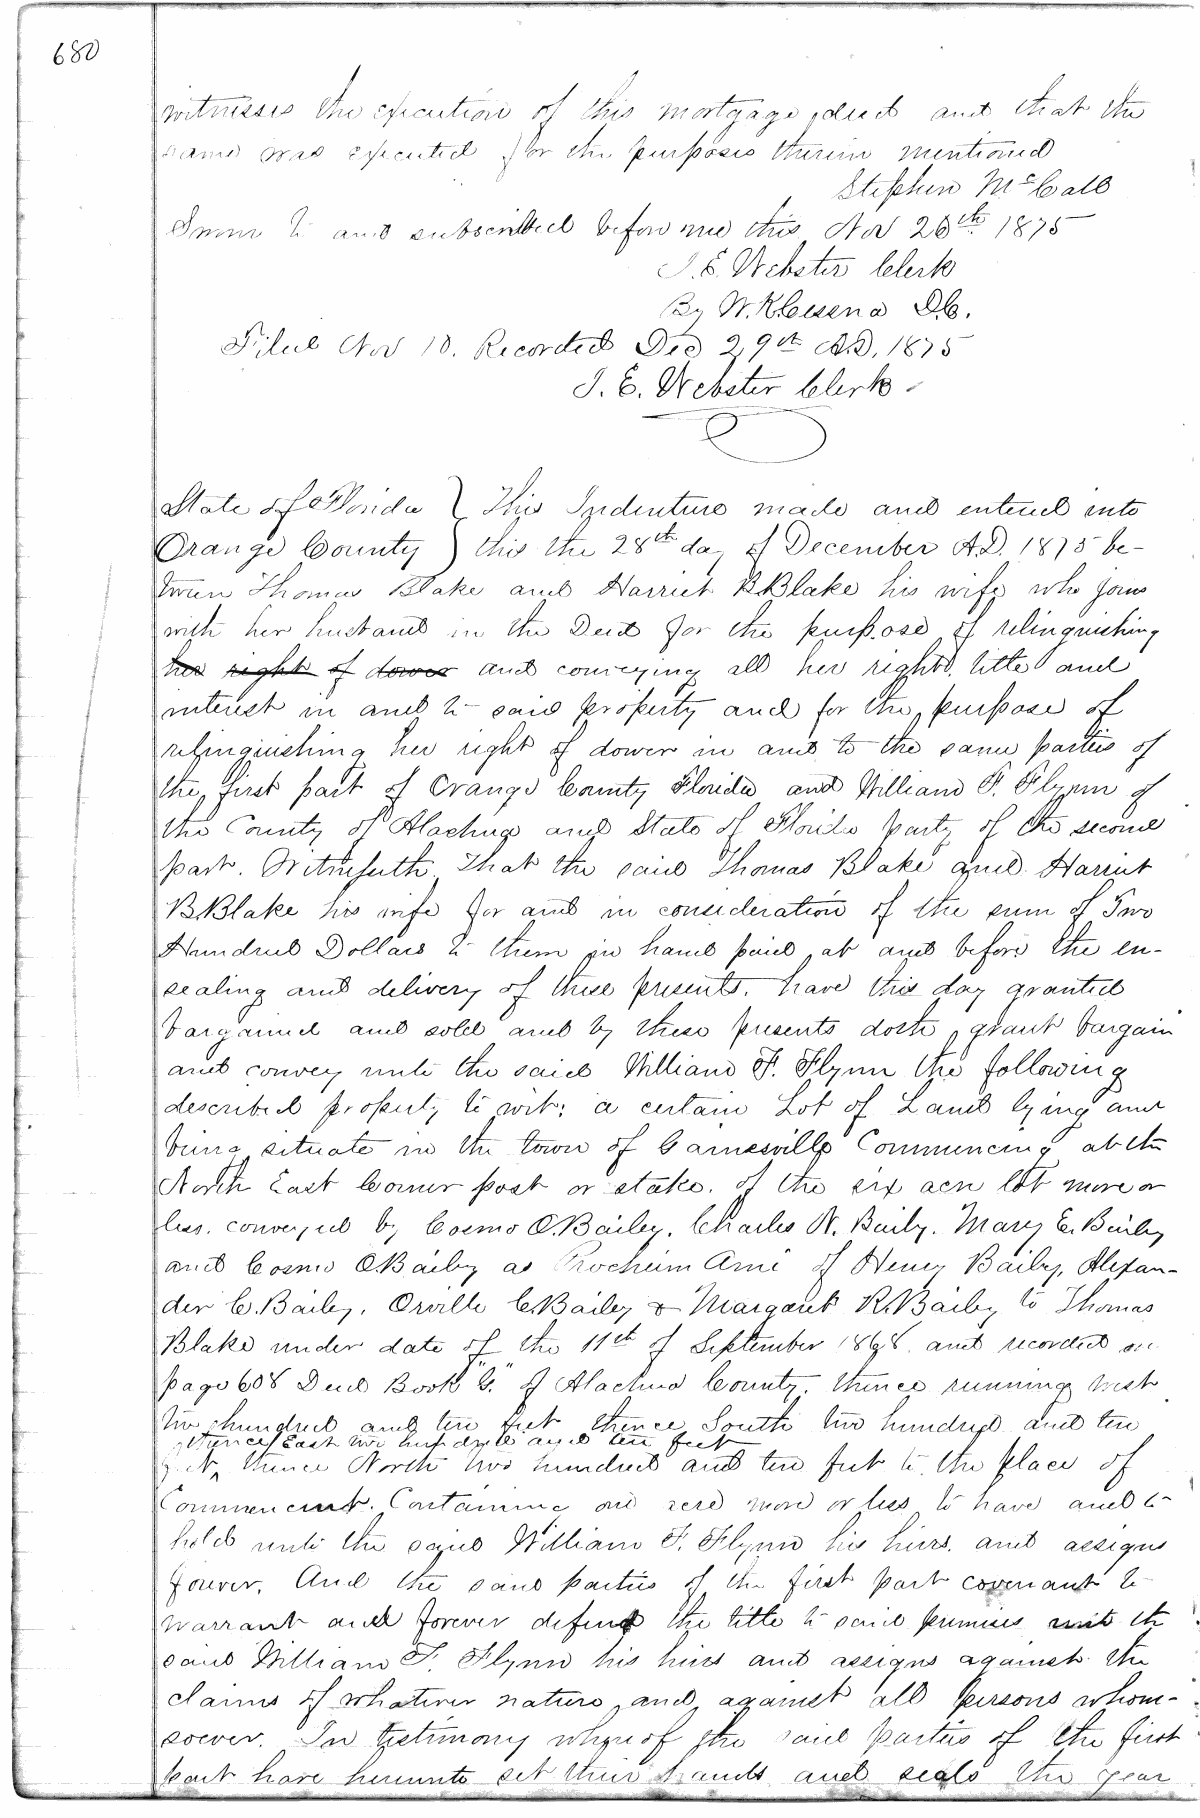 680
witnesses the execution of this mortgage deed and that the
same was executed for the purposes therein mentioned
Stephen McCall
Sworn to and subscribed before me this Nov 26th 1875
J. E. Webster Clerk
By W. K. Cessna D.C.
Filed Nov 10. Recorded Dec 29th A.D. 1875
J. E. Webster Clerk
State of Florida } This Indenture made and entered into
Orange County } this the 28th day of December A.D. 1875 be-
tween Thomas Blake and Harriet B Blake his wife who joins
with her husband in the Deed for the purpose of relinquishing
her right of dower and conveying all her right, title and
interest in and to said property and for the purpose of
relinquishing her right of dower in and to the same parties of
the first part of Orange County Florida and William F. Flynn of
the County of Alachua and State of Florida party of the second
part. Witnesseth That the said Thomas Blake and Harriet
B Blake his wife for and in consideration of the sum of Two
Hundred Dollars to them in hand paid at and before the en-
sealing and delivery of these presents. have this day granted
bargained and sold and by these presents doth grant bargain
and convey unto the said William F. Flynn the following
described property to wit: a certain Lot of Land lying and
being situate in the town of Gainesville Commencing at the
North East Corner post or stake. of the six acre lot more or
less. conveyed by Cosmo O. Bailey, Charles N. Baily. Mary E. Bailey
and Cosmo O Bailey as Procheim Ami of Henry Bailey, Alexan-
der C. Bailey, Orville C Bailey & Margaret R. Bailey to Thomas
Blake under date of the 11th of September 1868. and recorded on
page 608 Deed Book "G." of Alachua County. thence running west
two hundred and ten feet thence South two hundred and ten
thence East two hundred and ten feet
feet, thence North two hundred and ten feet to the place of
Commencent. Containing one acre more or less to have and to
hold unto the said William F. Flynn his heirs. and assigns
forever. And the said parties of the first part covenant to
warrant and forever defend the title to said premises unto the
said William F. Flynn his heirs and assigns against the
claims of whatever nature and against all persons whom-
soever. In testimony whereof the said parties of the first
part have hereunto set their hands and seals the year